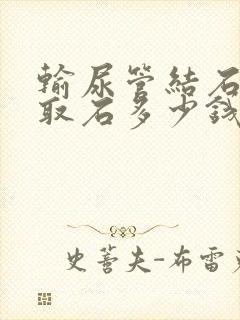 輸尿管結石
取石多少錢
史蒈夫-布雷